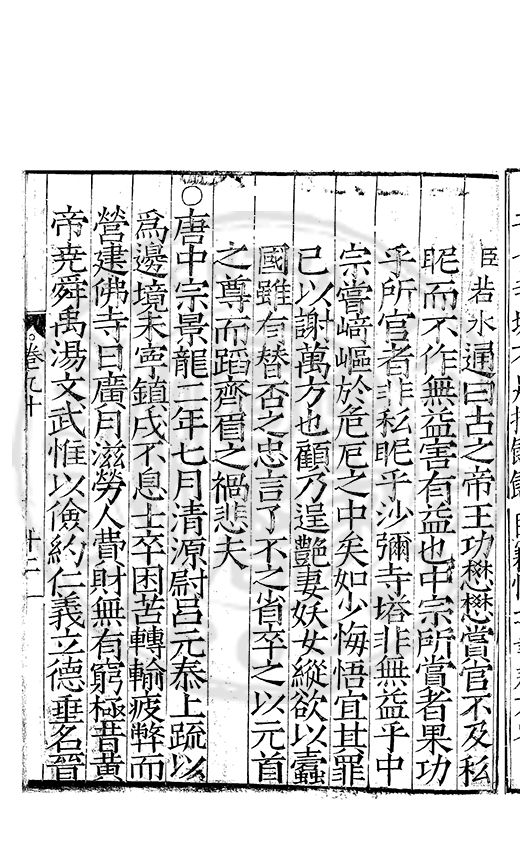 臣若水通曰古之帝王功懋懋賞官不及私
昵而不作無益害有益也中宗所賞者果功
乎所官者非私昵乎沙彌寺塔非無益乎中
宗嘗崎嶇於危戹之中矣如少悔悟宜其罪
已以謝萬方也顧乃逞艷妻妖女縱欲以蠹
國雖有替否之忠言了不之省卒之以元首
之尊而蹈齊眉之禍悲夫
○唐中宗景龍二年七月清源尉呂元泰上疏以
爲邊境未寧鎮戍不息士卒困苦轉輸疲弊而
營建佛寺日廣月滋勞人費財無有窮極昔黃
帝堯舜禹湯文武惟以儉約仁義立德垂名晉
卷九十 十二